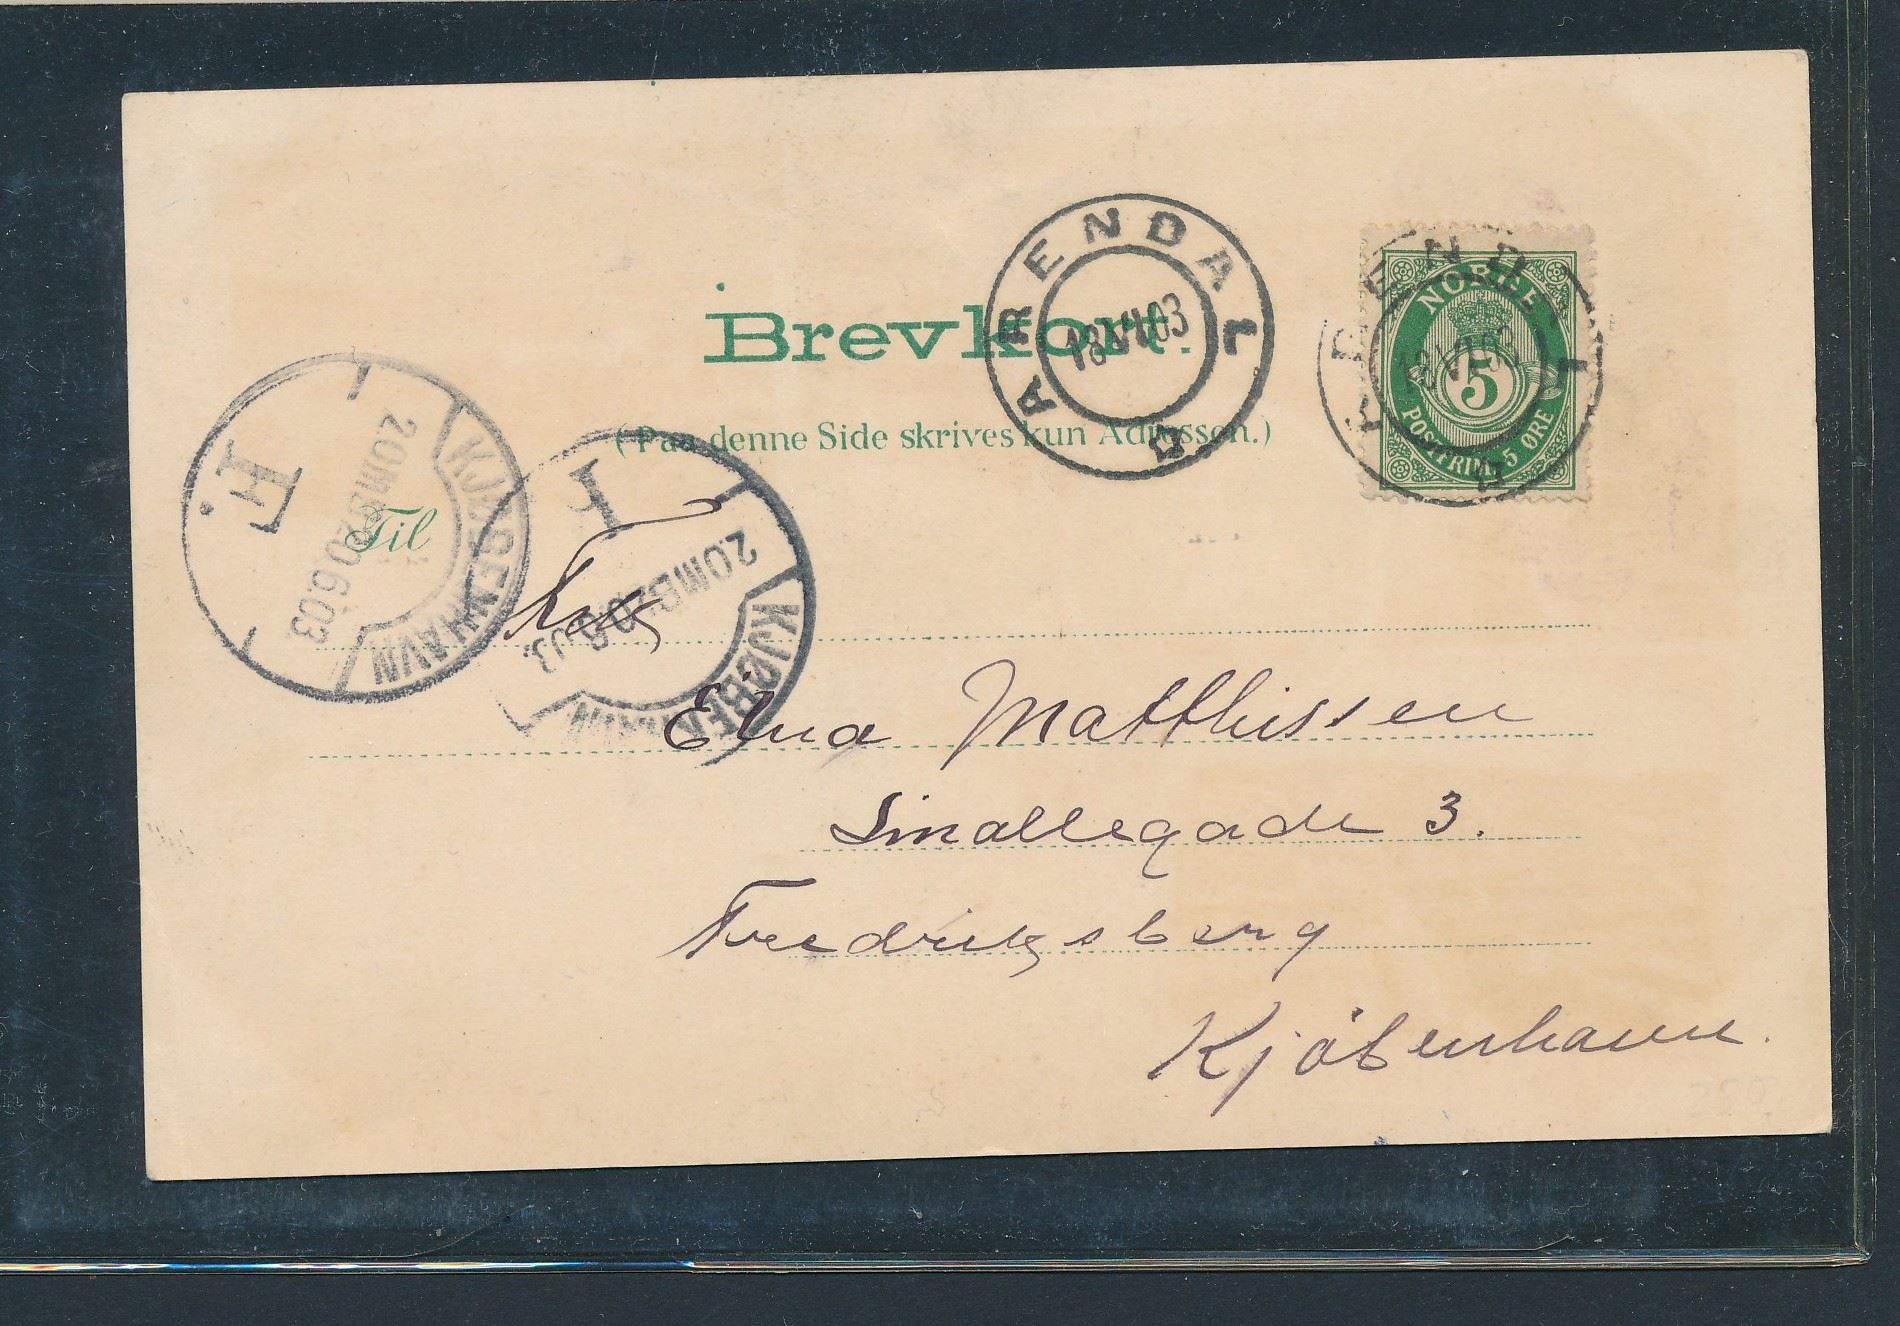 Brevkort.
(Paa denne Side skrives kun Adressen.)
ARENDAL
18 VI 03
B
ARENDAL
18 VI 03
B
NORGE
5
POSTFRIM. 5 ØRE
KJØBENHAVN
20MB20.6.03.
F.
KJØBENHAVN
20MB20.6.03.
Til
Frk
Elna Matthissen
Smallegade 3.
Fredriksberg
Kjøbenhavn.